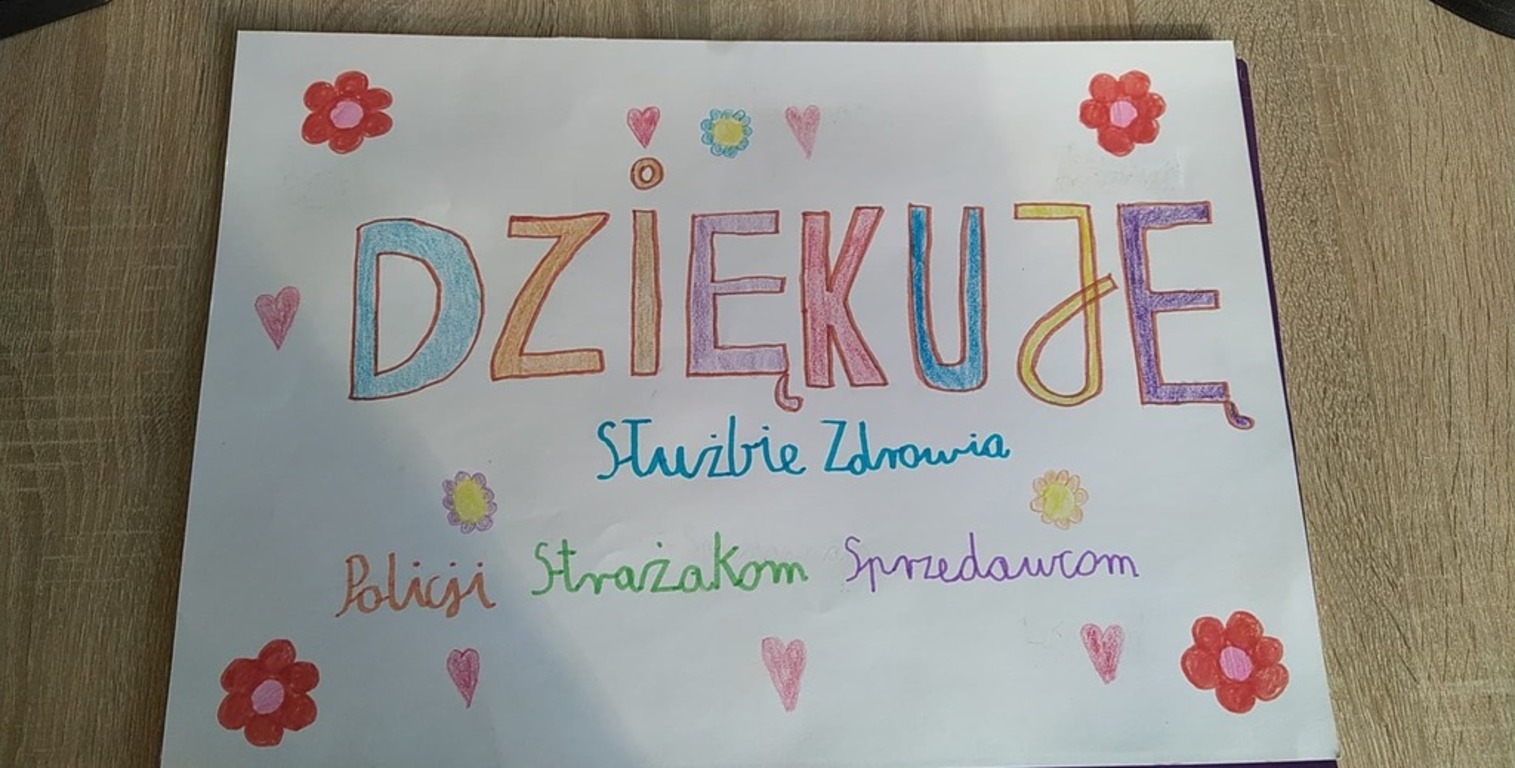 DZiĘKUJĘ
Służbie Zdrowia
Policji Strażakom Sprzedawcom